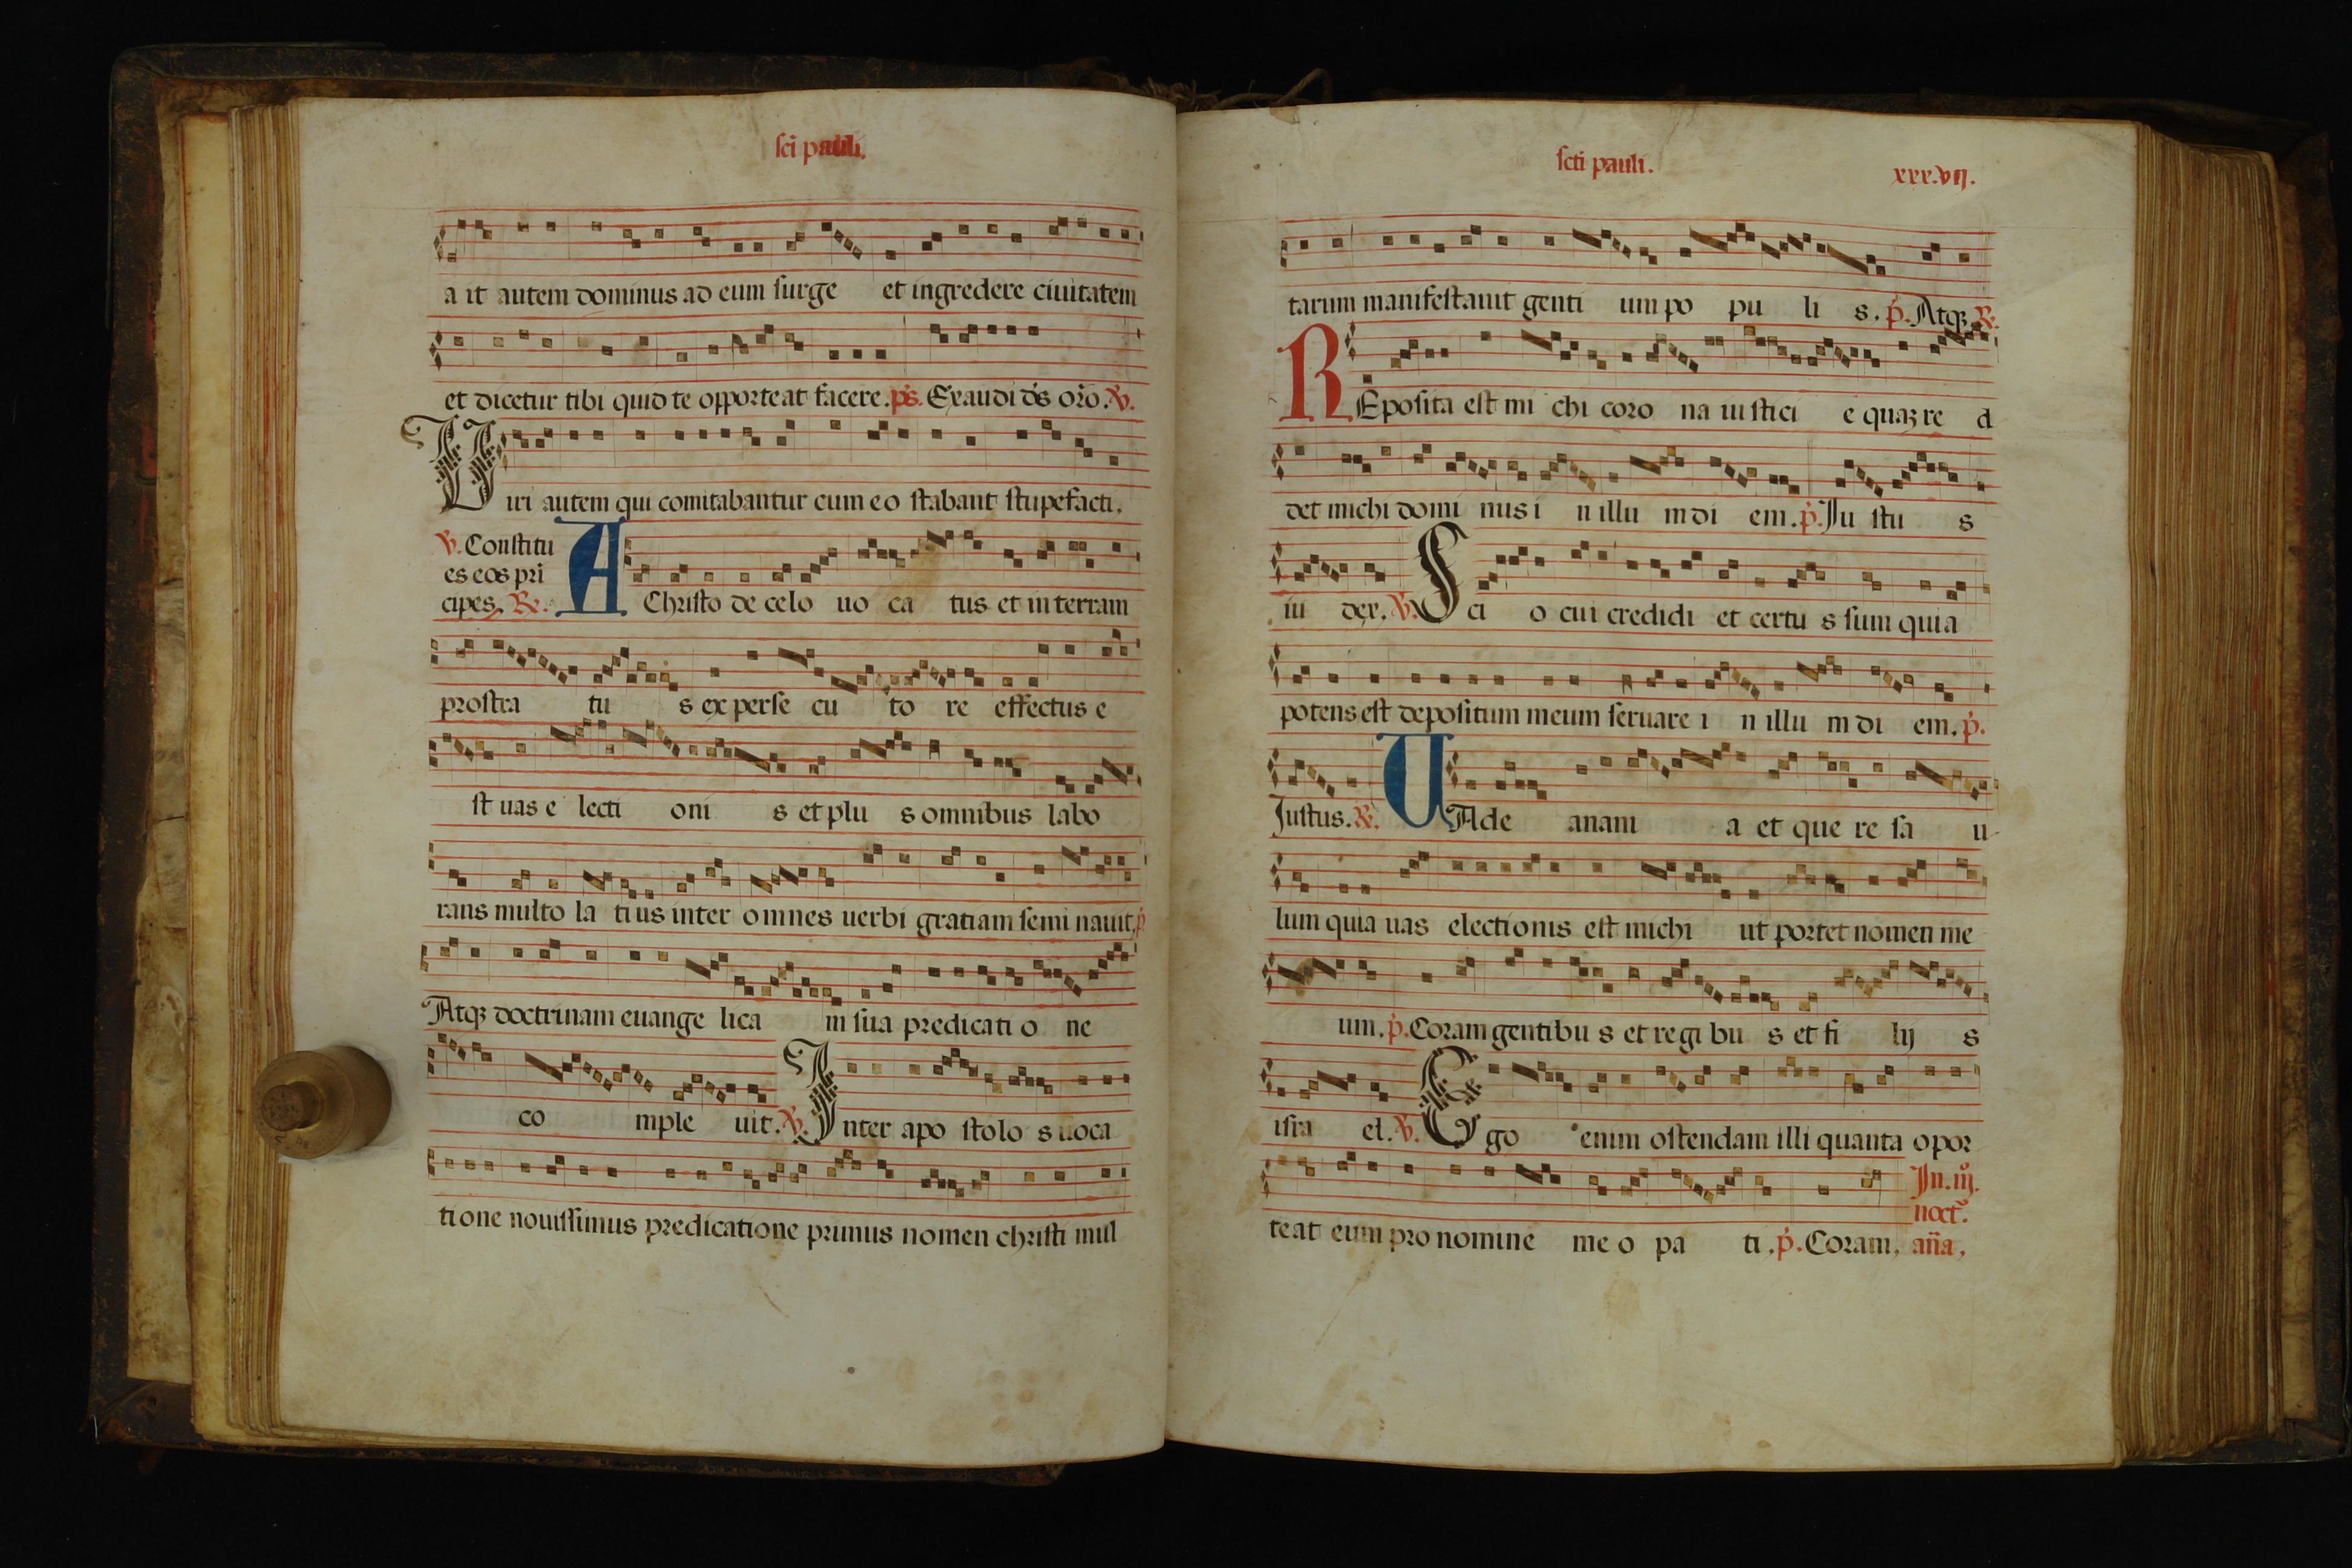 sci pauli.
a it autem dominus ad eum surge et ingredere ciuitatem
et dicetur tibi quid te opporteat facere. ps. Exaudi ds oro. V.
Uiri autem qui comitabantur cum eo stabant stupefacti.
V. Constitu
es eos pri
cipes. Re. A Christo de celo uo ca tus et in terram
prostra tu s ex perse cu to re effectus e
st uas e lecti oni s et plu s omnibus labo
rans multo la ti us inter omnes uerbi gratiam semi nauit. p
Atqz doctrinam euange lica m sua predicati o ne
co mple uit. V. Inter apo stolo s uoca
tione nouissimus predicatione primus nomen christi mul
scti pauli. xxx.vij.
tarum manifestauit genti um po pu li s. p. Atqz R.
REposita est mi chi coro na iu stici e quaz re d
det michi domi nus i n illu m di em. p. Iu stu s
iu dex. V. Sci o cui credidi et certu s sum quia
potens est depositum meum seruare i n illu m di em. p.
Iustus. R. UAde anani a et que re sa u
lum quia uas electionis est michi ut portet nomen me
um. p. Coram gentibu s et regi bu s et fi lij s
isra el. V. Ego enim ostendam illi quanta opor
teat eum pro nomine me o pa ti. p. Coram.
In. iij.
noct.
aña.